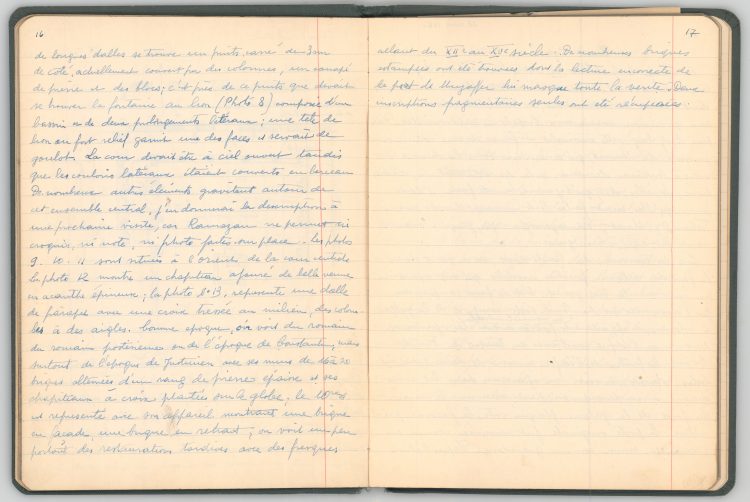 16
de longues dalles se trouve un puits carré de 3m
de côté, actuellement couvert par des colonnes, un canapé
de pierre et des blocs; c'est près de ce puits que devait
se trouver la fontaine au lion (Photo 8) composée d'un
bassin et de deux prolongements latéraux; une tête de
lion au fort relief garnit une des faces et servait de
goulot. La cour devait être à ciel ouvert tandis
que les couloirs latéraux étaient couverts en berceau
De nombreux autres éléments gravitent autour de
cet ensemble central, j'en donnerai la description à
une prochaine visite, car Ramazan ne permet ni
croquis, ni note, ni photo faites sur place. Les photos
9. 10. 11 sont situées à l'orient de la cour centrale
La photo 12 montre un chapiteau ajouré de belle venue
en acanthe épineuse; la photo 13, représente une dalle
de parapet avec une croix tressée au milieu, des colom-
bes à des aigles. Comme époque, on voit du romain
du romain postérieur ou de l'époque de Constantin, mais
surtout de l'époque de Justinien avec ses murs de 20
briques alternées d'un rang de pierres épaisse et ses
chapiteaux à croix plantées sur le globe; le
est représenté avec son appareil montrant une brique
en façade, une brique en retrait; on voit un peu
partout des restaurations tardives avec des fresques
17
allant du XII^e au siècle. De nombreuses briques
estampées ont été trouvées dont la lecture incorrecte de
la part de Muzaffer bis masque toute la vente. Deux
inscriptions fragmentaires seules ont été récupérées.